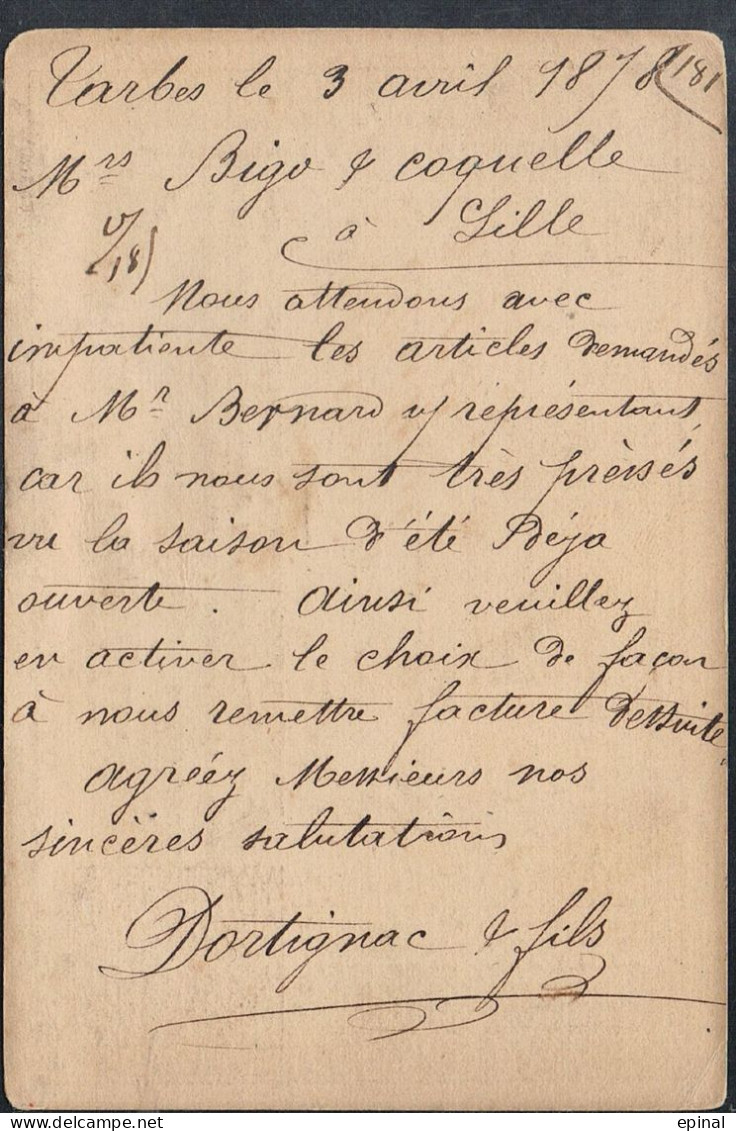 Tarbes le 3 avril 1878 181
Mrs Bigo & coquelle
à Lille
V/181
Nous attendons avec
impatiente les articles demandés
à Mr Bernard v/ réprésentant,
car ils nous sont très préssés
vu la saison d'été Déja
ouverte. Ainsi veuillez
en activer le choix de façon
à nous remettre facture dessuite.
Agréez Messieurs nos
sincères salutations
Dortignac & fils
epinal